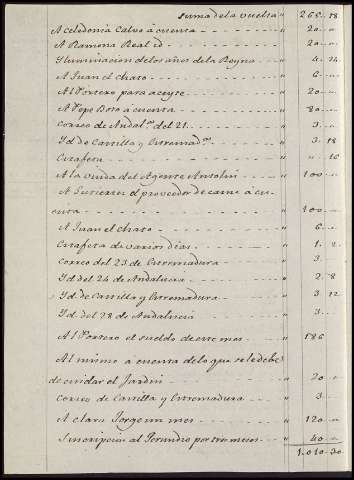 Suma de la vuelta " 265.. 18
A Celedonia Calvo a cuenta " 20.. "
A Ramona Real id " 20.. "
Yluminacion de los años de la Reyna " 4.. 24
A Juan el chato " 6.. "
Al Portero para aceyte " 20.. "
A Pepe Boso a cuenta " 80.. "
Correo de Andal.ª del 21 " 3.. "
Yd. de Castilla y Extremad.ª " 3.. 18
Estafeta " " .. 16
A la viuda del Agente Antolin " 100.. "
A Gutierrez el proveedor de carne á cu-
enta " 100.. "
A Juan el chato " 6.. "
Estafeta de varios dias " 1.. 2
Correo del 23 de Extremadura " 3..
Yd. del 24 de Andalucia " 2.. 8
Yd. de Castilla y Extremadura " 3.. 12
Yd. del 28 de Andalucia " 3..
Al Portero el sueldo de este mes " 186
Al mismo a cuenta de lo que se le debe
de cuidar el Jardin " 20.. "
Correo de Castilla y Extremadura " 3..
A Clara Jorge un mes " 120.. "
Suscripcion al por tres meses " 40.. "
1.010.. 30